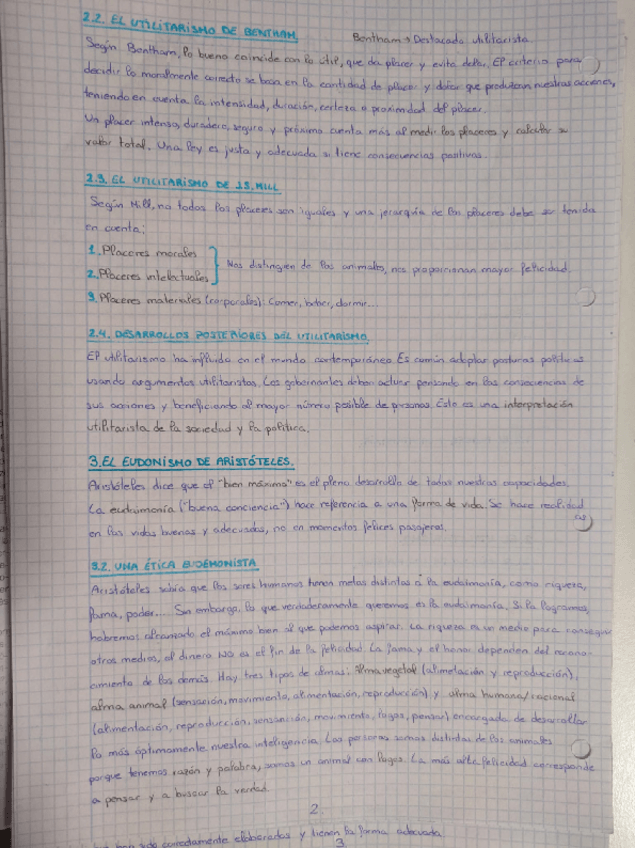 2.2. EL UTILITARISMO DE BENTHAM
Bentham → Destacado utilitarista
Según Bentham, lo bueno coincide con lo útil, que da placer y evita dolor. El criterio para
decidir lo moralmente correcto se basa en la cantidad de placer y dolor que produzcan nuestras acciones,
teniendo en cuenta la intensidad, duración, certeza o proximidad del placer.
Un placer intenso, duradero, seguro y próximo cuenta más al medir los placeres y calcular su
valor total. Una ley es justa y adecuada si tiene consecuencias positivas.
2.3. EL UTILITARISMO DE J.S. MILL
Según Mill, no todos los placeres son iguales y una jerarquía de los placeres debe ser tenida
en cuenta:
1. Placeres morales
2. Placeres intelectuales
Nos distinguen de los animales, nos proporcionan mayor felicidad.
3. Placeres materiales (corporales): Comer, beber, dormir...
2.4. DESARROLLOS POSTERIORES DEL UTILITARISMO
El utilitarismo ha influido en el mundo contemporáneo. Es común adoptar posturas políticas
usando argumentos utilitaristas. Los gobernantes deben actuar pensando en las consecuencias de
sus acciones y beneficiando al mayor número posible de personas. Esto es una interpretación
utilitarista de la sociedad y la política.
3. EL EUDONISMO DE ARISTÓTELES.
Aristóteles dice que el "bien máximo" es el pleno desarrollo de todas nuestras capacidades.
La eudaimonía ("buena conciencia") hace referencia a una forma de vida. Se hace realidad
en las vidas buenas y adecuadas, no en momentos felices pasajeros.
3.2. UNA ÉTICA EUDEMONISTA
Aristóteles sabía que los seres humanos tienen metas distintas a la eudaimonía, como riqueza,
fama, poder... Sin embargo, lo que verdaderamente queremos es la eudaimonía. Si la logramos,
habremos alcanzado el máximo bien al que podemos aspirar. La riqueza es un medio para conseguir
otros medios, el dinero NO es el fin de la felicidad. La fama y el honor dependen del recono-
cimiento de los demás. Hay tres tipos de almas: alma vegetal (alimentación y reproducción),
alma animal (sensación, movimiento, alimentación, reproducción) y alma humana/racional
(alimentación, reproducción, sensación, movimiento, logos, pensar) encargada de desarrollar
lo más óptimamente nuestra inteligencia. Las personas somos distintas de los animales
porque tenemos razón y palabra, somos un animal con logos. La más alta felicidad corresponde
a pensar y a buscar la verdad.
2.
han sido correctamente elaborados y tienen la forma adecuada.
3